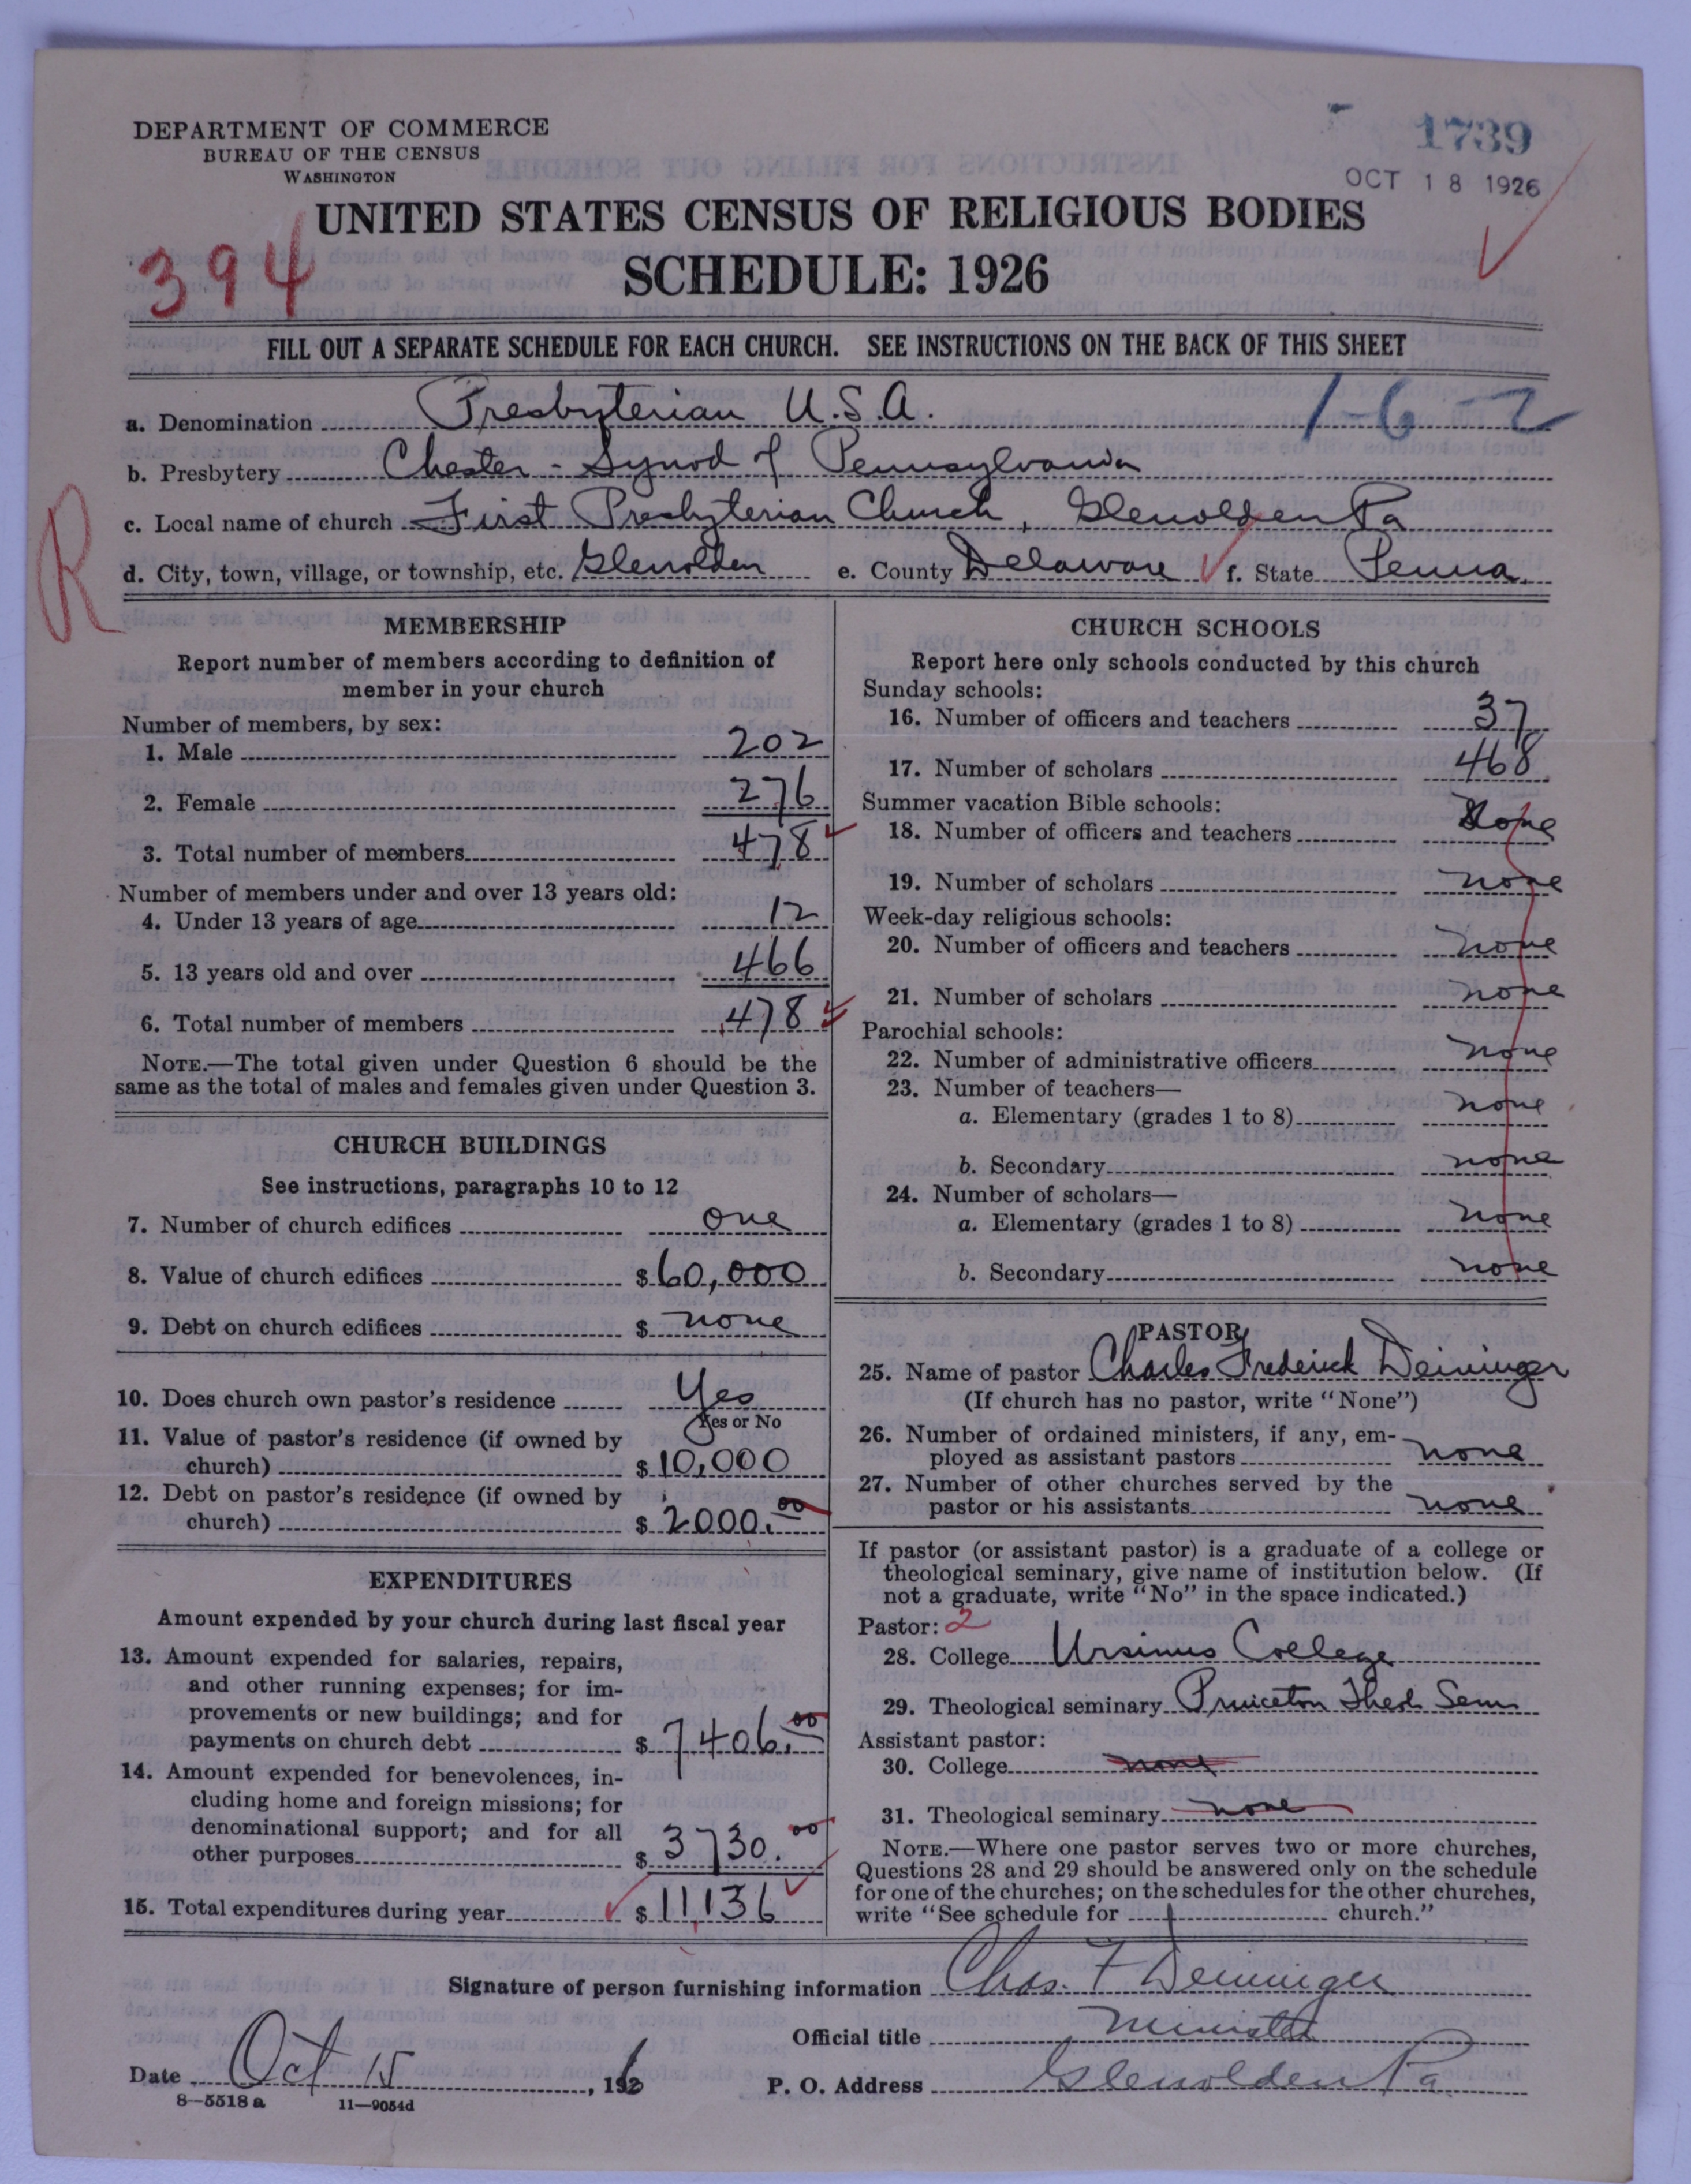 DEPARTMENT OF COMMERCE
BUREAU OF THE CENSUS
WASHINGTON
1739
OCT 18 1926
UNITED STATES CENSUS OF RELIGIOUS BODIES
394
SCHEDULE: 1926
FILL OUT A SEPARATE SCHEDULE FOR EACH CHURCH. SEE INSTRUCTIONS ON THE BACK OF THIS SHEET
a. Denomination Presbyterian U.S.A. 1-6-2
b. Presbytery Chester - Synod of Pennsylvania
R
c. Local name of church First Presbyterian Church, Glenolden Pa
d. City, town, village, or township, etc. Glenolden e. County Delaware f. State Penna.
MEMBERSHIP
Report number of members according to definition of
member in your church
Number of members, by sex:
1. Male 202
2. Female 276
3. Total number of members 478
Number of members under and over 13 years old:
4. Under 13 years of age 12
5. 13 years old and over 466
6. Total number of members 478
NOTE.—The total given under Question 6 should be the
same as the total of males and females given under Question 3.
CHURCH BUILDINGS
See instructions, paragraphs 10 to 12
7. Number of church edifices one
8. Value of church edifices $ 60,000
9. Debt on church edifices $ none
10. Does church own pastor's residence Yes
Yes or No
11. Value of pastor's residence (if owned by
church) $ 10,000
12. Debt on pastor's residence (if owned by
church) $ 2000.00
EXPENDITURES
Amount expended by your church during last fiscal year
13. Amount expended for salaries, repairs,
and other running expenses; for im-
provements or new buildings; and for
payments on church debt $ 7406.00
14. Amount expended for benevolences, in-
cluding home and foreign missions; for
denominational support; and for all
other purposes $ 3730.00
15. Total expenditures during year $ 11,136
CHURCH SCHOOLS
Report here only schools conducted by this church
Sunday schools:
16. Number of officers and teachers 37
17. Number of scholars 468
Summer vacation Bible schools:
18. Number of officers and teachers None
19. Number of scholars none
Week-day religious schools:
20. Number of officers and teachers none
21. Number of scholars none
Parochial schools:
22. Number of administrative officers none
23. Number of teachers—
a. Elementary (grades 1 to 8) none
b. Secondary none
24. Number of scholars—
a. Elementary (grades 1 to 8) none
b. Secondary none
PASTOR
25. Name of pastor Charles Frederick Deininger
(If church has no pastor, write "None")
26. Number of ordained ministers, if any, em-
ployed as assistant pastors none
27. Number of other churches served by the
pastor or his assistants none
If pastor (or assistant pastor) is a graduate of a college or
theological seminary, give name of institution below. (If
not a graduate, write "No" in the space indicated.)
Pastor: 2
28. College Ursinus College
29. Theological seminary Princeton Theol Sem
Assistant pastor:
30. College none
31. Theological seminary none
NOTE.—Where one pastor serves two or more churches,
Questions 28 and 29 should be answered only on the schedule
for one of the churches; on the schedules for the other churches,
write "See schedule for church."
Signature of person furnishing information Chas. F Deininger
Official title Minister
Date Oct 15, 1926 P. O. Address Glenolden Pa.
8—5518 a 11—9054d